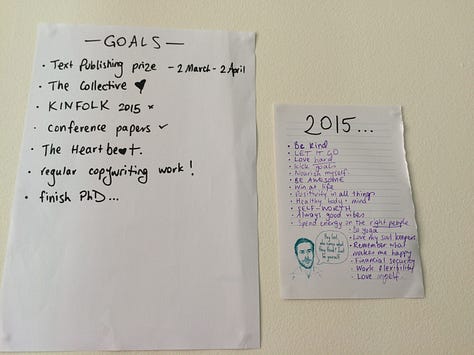 — GOALS —
• Text Publishing prize – 2 March - 2 April
• The Collective ♥
• KINFOLK 2015 ×
• conference papers ✓
• The Heartbeat.
• regular copywriting work !
• finish PhD...
2015...
• Be Kind
• LET IT GO
• Love hard
• kick goals
• Nourish myself.
• BE AWESOME
• Win at life
• Positivity in all things
• Healthy body + mind
• SELF-WORTH
• Always good vibes
• Spend energy on the right people
• Do yoga
• Love my soul keepers
• Remember what
makes me happy
• Financial security
• Work flexibility
• Love myself.
Hey Girl,
who cares what
they think? Just
be yourself